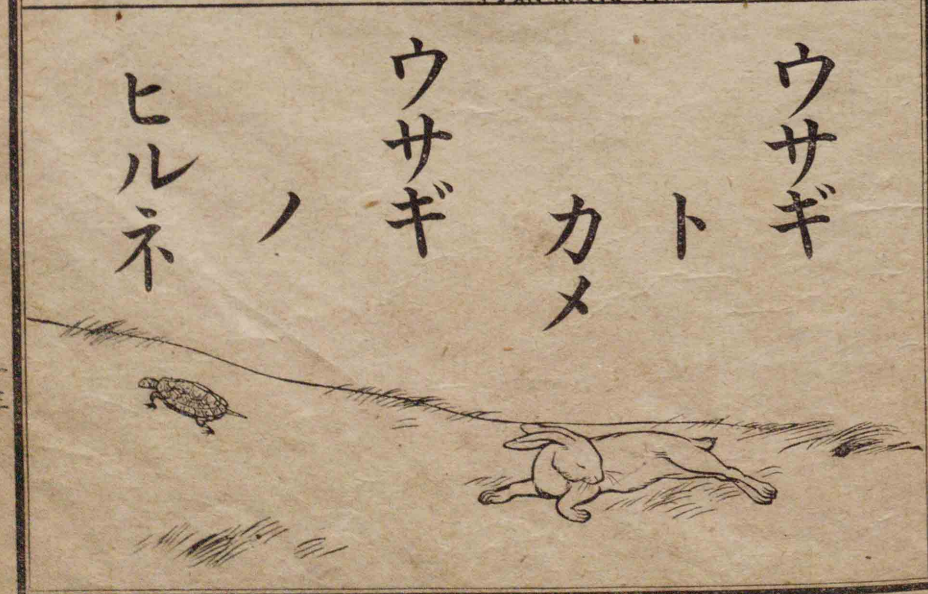 ウサギ
ト
カメ
ウサギ
ノ
ヒルネ